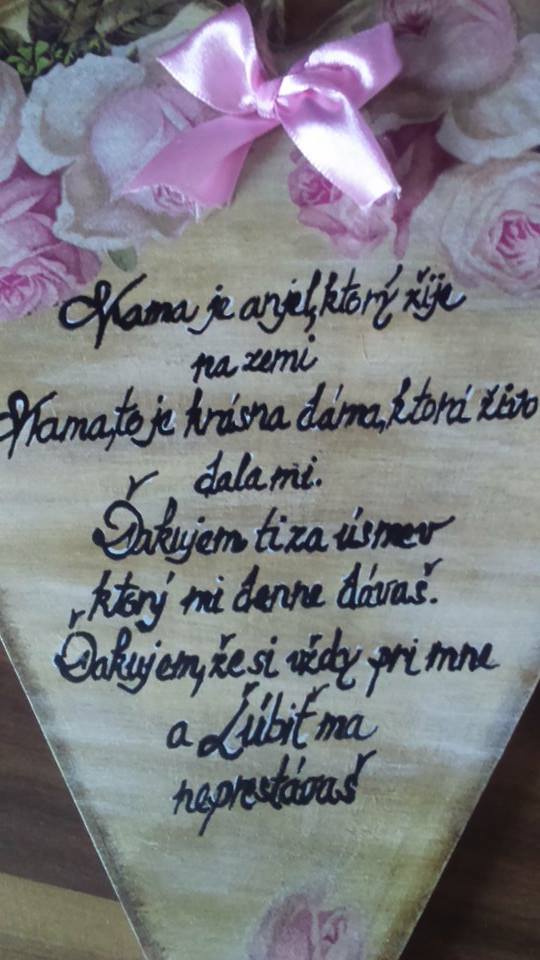 Mama je anjel, ktorý žije
na zemi
Mama, to je krásna dáma, ktorá živo
dala mi.
Ďakujem ti za úsmev
ktorý mi denne dávaš.
Ďakujem, že si vždy pri mne
a Ľúbiť ma
neprestávaš